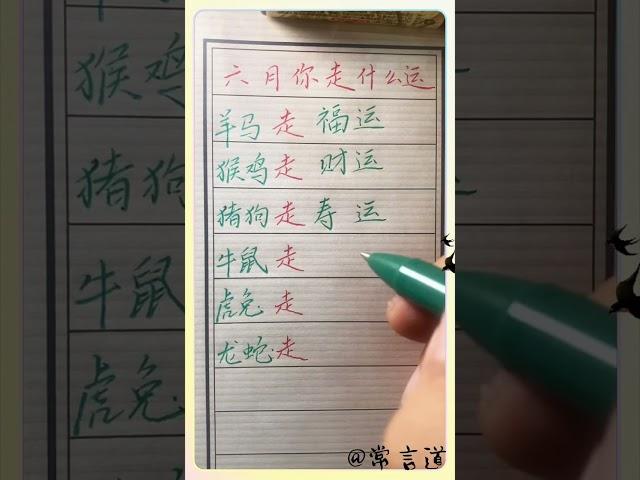 六月你走什么运
羊马走福运
猴鸡走财运
猪狗走寿运
牛鼠走
虎兔走
龙蛇走
@常言道